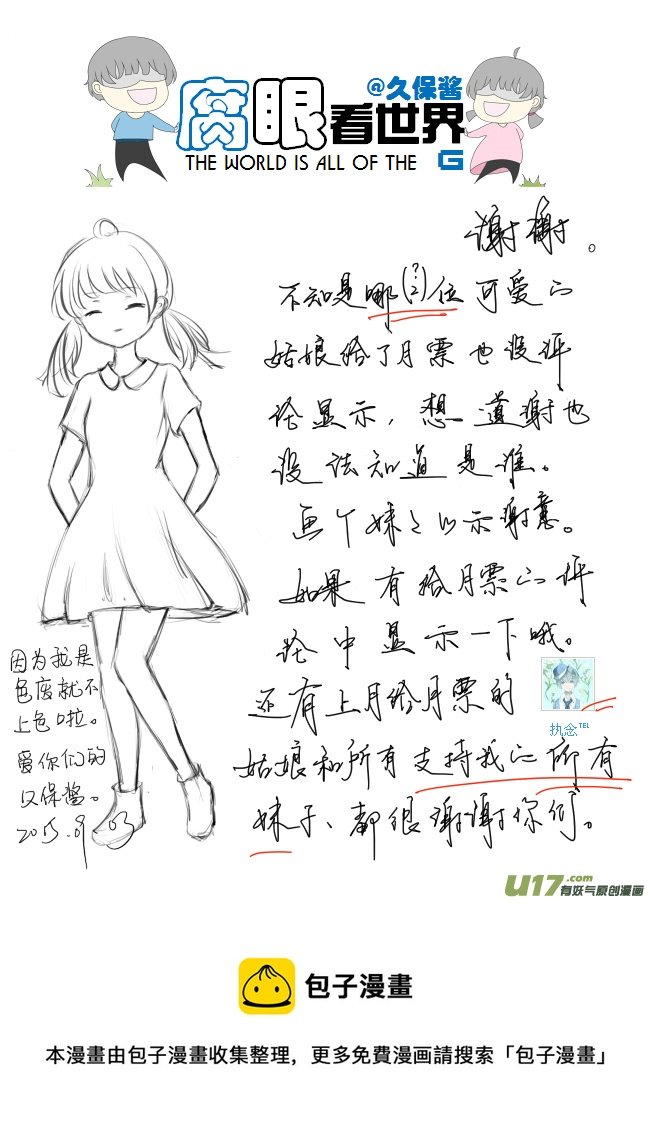 @久保酱
腐眼看世界
THE WORLD IS ALL OF THE G
谢谢。
不知是哪(??)位可爱的
姑娘给了月票也没评
论显示,想道谢也
没法知道是谁。
画个妹子以示谢意。
如果有给月票的评
论中显示一下哦。
还有上月给月票的
执念TEL
姑娘和所有支持我的所有
妹子、都很谢谢你们。
因为我是
色废就不
上色啦。
爱你们的
久保酱。
2015.09.03
U17.com
有妖气原创漫画
包子漫畫
本漫畫由包子漫畫收集整理,更多免費漫画請搜索「包子漫畫」